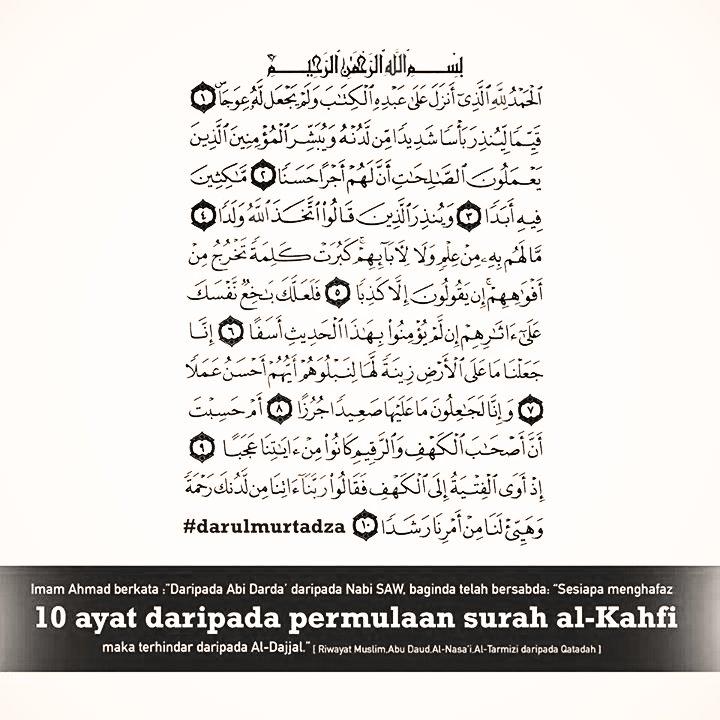 بِسْمِ ٱللَّهِ ٱلرَّحْمَٰنِ ٱلرَّحِيمِ
ٱلْحَمْدُ لِلَّهِ ٱلَّذِىٓ أَنزَلَ عَلَىٰ عَبْدِهِ ٱلْكِتَٰبَ وَلَمْ يَجْعَل لَّهُۥ عِوَجَاۜ ١
قَيِّمًا لِّيُنذِرَ بَأْسًا شَدِيدًا مِّن لَّدُنْهُ وَيُبَشِّرَ ٱلْمُؤْمِنِينَ ٱلَّذِينَ
يَعْمَلُونَ ٱلصَّٰلِحَٰتِ أَنَّ لَهُمْ أَجْرًا حَسَنًا ٢ مَّٰكِثِينَ
فِيهِ أَبَدًا ٣ وَيُنذِرَ ٱلَّذِينَ قَالُوا۟ ٱتَّخَذَ ٱللَّهُ وَلَدًا ٤
مَّا لَهُم بِهِۦ مِنْ عِلْمٍ وَلَا لِـَٔابَآئِهِمْ ۚ كَبُرَتْ كَلِمَةً تَخْرُجُ مِنْ
أَفْوَٰهِهِمْ ۚ إِن يَقُولُونَ إِلَّا كَذِبًا ٥ فَلَعَلَّكَ بَٰخِعٌ نَّفْسَكَ
عَلَىٰٓ ءَاثَٰرِهِمْ إِن لَّمْ يُؤْمِنُوا۟ بِهَٰذَا ٱلْحَدِيثِ أَسَفًا ٦ إِنَّا
جَعَلْنَا مَا عَلَى ٱلْأَرْضِ زِينَةً لَّهَا لِنَبْلُوَهُمْ أَيُّهُمْ أَحْسَنُ عَمَلًا
٧ وَإِنَّا لَجَٰعِلُونَ مَا عَلَيْهَا صَعِيدًا جُرُزًا ٨ أَمْ حَسِبْتَ
أَنَّ أَصْحَٰبَ ٱلْكَهْفِ وَٱلرَّقِيمِ كَانُوا۟ مِنْ ءَايَٰتِنَا عَجَبًا ٩
إِذْ أَوَى ٱلْفِتْيَةُ إِلَى ٱلْكَهْفِ فَقَالُوا۟ رَبَّنَآ ءَاتِنَا مِن لَّدُنكَ رَحْمَةً
وَهَيِّئْ لَنَا مِنْ أَمْرِنَا رَشَدًا ١٠ #darulmurtadza
Imam Ahmad berkata :"Daripada Abi Darda' daripada Nabi SAW, baginda telah bersabda: "Sesiapa menghafaz
10 ayat daripada permulaan surah al-Kahfi
maka terhindar daripada Al-Dajjal." [ Riwayat Muslim,Abu Daud,Al-Nasa'i,Al-Tarmizi daripada Qatadah ]